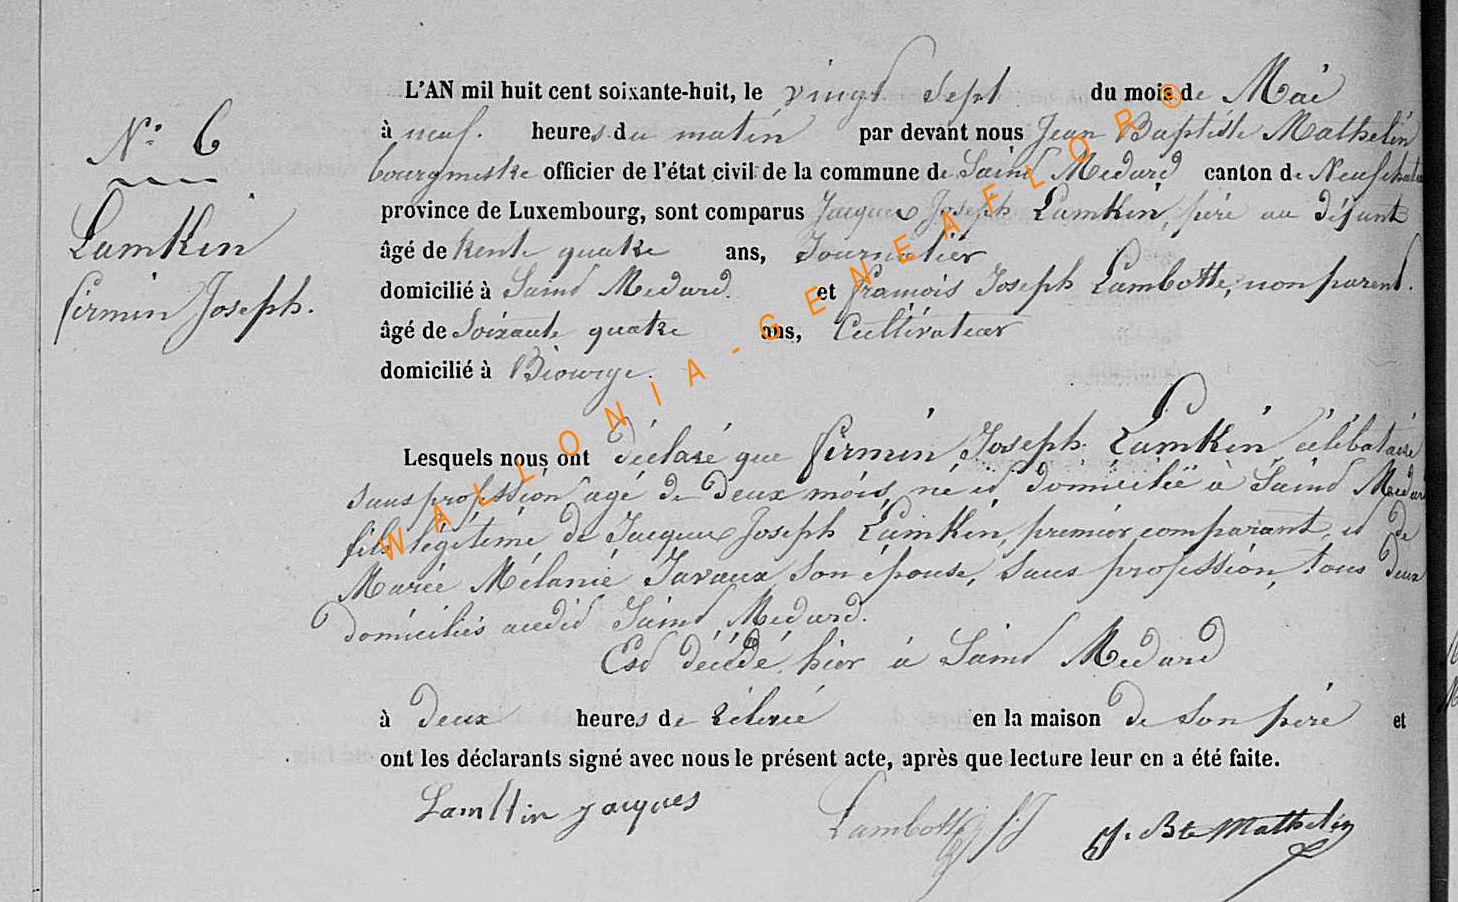 N.° 6
Lamkin
firmin Joseph.
L'AN mil huit cent soixante-huit, le vingt sept du mois de Mai
à neuf. heures du matin par devant nous Jean Baptiste Mathelin
bourgmestre officier de l'état civil de la commune de Saint Médard canton de Neufchateau
province de Luxembourg, sont comparus Jacques Joseph Lamkin, père au défunt
âgé de trente quatre ans, Journalier
domicilié à Saint Medard. et françois Joseph Lambotte, non parent.
âgé de Soixante quatre ans, Cultivateur
domicilié à Biourge.
Lesquels nous ont déclaré que firmin Joseph Lamkin, célébataire
sans profession agé de deux mois, né et domicilié à Saint Medard
fils légitime de Jacques Joseph Lamkin, premier comparant, et de
Marie Mélanie Javaux, son épouse, sans profession, tous deux
domiciliés audit Saint Medard.
Est décédé, hier à Saint Medard
à deux heures de rélevée en la maison de son père et
ont les déclarants signé avec nous le présent acte, après que lecture leur en a été faite.
Lamkin jacques Lambotte f. J J. Bte Mathelin
WALLONIA-GENEAFLOR®